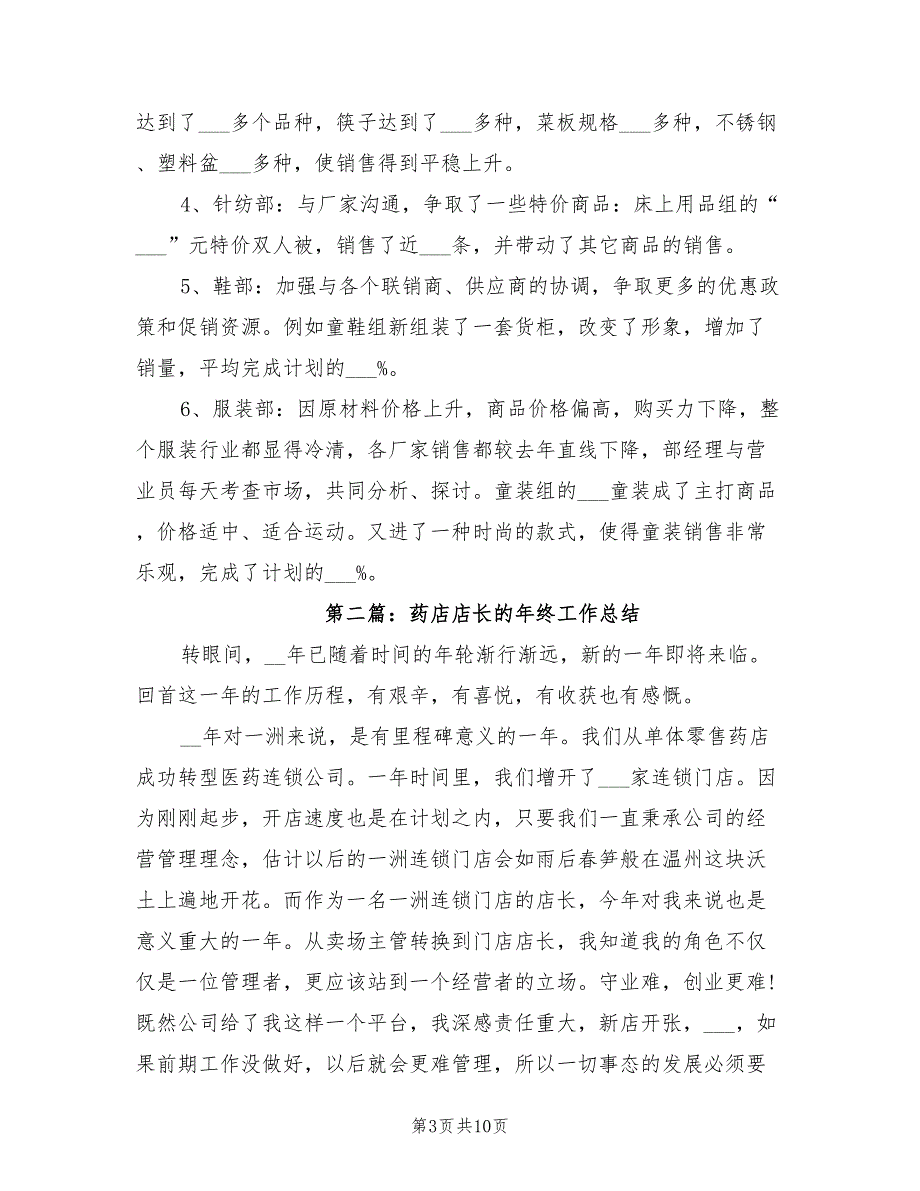 达到了___多个品种，筷子达到了___多种，菜板规格___多种，不锈钢
、塑料盆___多种，使销售得到平稳上升。
4、针纺部：与厂家沟通，争取了一些特价商品：床上用品组的“
___”元特价双人被，销售了近___条，并带动了其它商品的销售。
5、鞋部：加强与各个联销商、供应商的协调，争取更多的优惠政
策和促销资源。例如童鞋组新组装了一套货柜，改变了形象，增加了
销量，平均完成计划的___%。
6、服装部：因原材料价格上升，商品价格偏高，购买力下降，整
个服装行业都显得冷清，各厂家销售都较去年直线下降，部经理与营
业员每天考查市场，共同分析、探讨。童装组的___童装成了主打商品
，价格适中、适合运动。又进了一种时尚的款式，使得童装销售非常
乐观，完成了计划的___%。
第二篇：药店店长的年终工作总结
转眼间，__年已随着时间的年轮渐行渐远，新的一年即将来临。
回首这一年的工作历程，有艰辛，有喜悦，有收获也有感慨。
__年对一洲来说，是有里程碑意义的一年。我们从单体零售药店
成功转型医药连锁公司。一年时间里，我们增开了___家连锁门店。因
为刚刚起步，开店速度也是在计划之内，只要我们一直秉承公司的经
营管理理念，估计以后的一洲连锁门店会如雨后春笋般在温州这块沃
土上遍地开花。而作为一名一洲连锁门店的店长，今年对我来说也是
意义重大的一年。从卖场主管转换到门店店长，我知道我的角色不仅
仅是一位管理者，更应该站到一个经营者的立场。守业难，创业更难!
既然公司给了我这样一个平台，我深感责任重大，新店开张，___，如
果前期工作没做好，以后就会更难管理，所以一切事态的发展必须要
第3页共10页